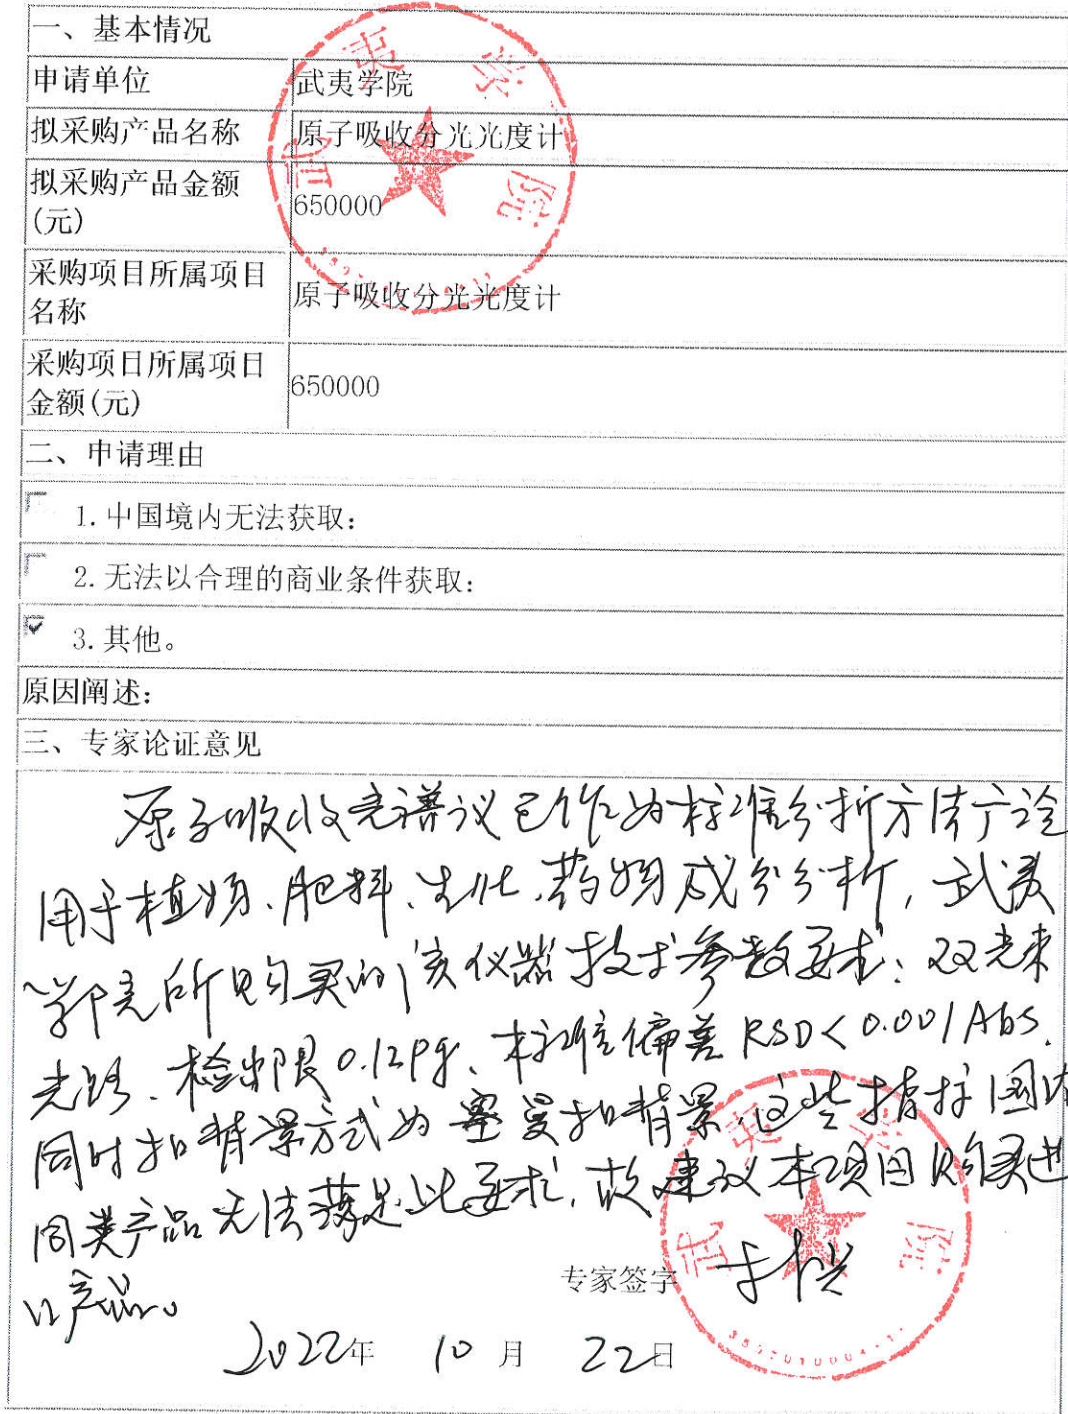 一、基本情况
申请单位 武夷学院
拟采购产品名称 原子吸收分光光度计
拟采购产品金额
(元) 650000
采购项目所属项目
名称 原子吸收分光光度计
采购项目所属项目
金额(元) 650000
二、申请理由
1.中国境内无法获取：
2.无法以合理的商业条件获取：
3.其他。
原因阐述：
三、专家论证意见
原子吸收光谱议已作为标准分析方法广泛
用于植物、肥料、生化、药物成分分析，武夷
学院所购买的该仪器技术参数要求：双光束
光路、检出限0.12pg、标准偏差RSD<0.001Abs.
同时扣背景方式为塞曼扣背景，这些指标国内
同类产品无法满足此要求，故建议本项目购买进
口产品。
专家签字
2022年 10月 22日
武夷学院
武夷学院